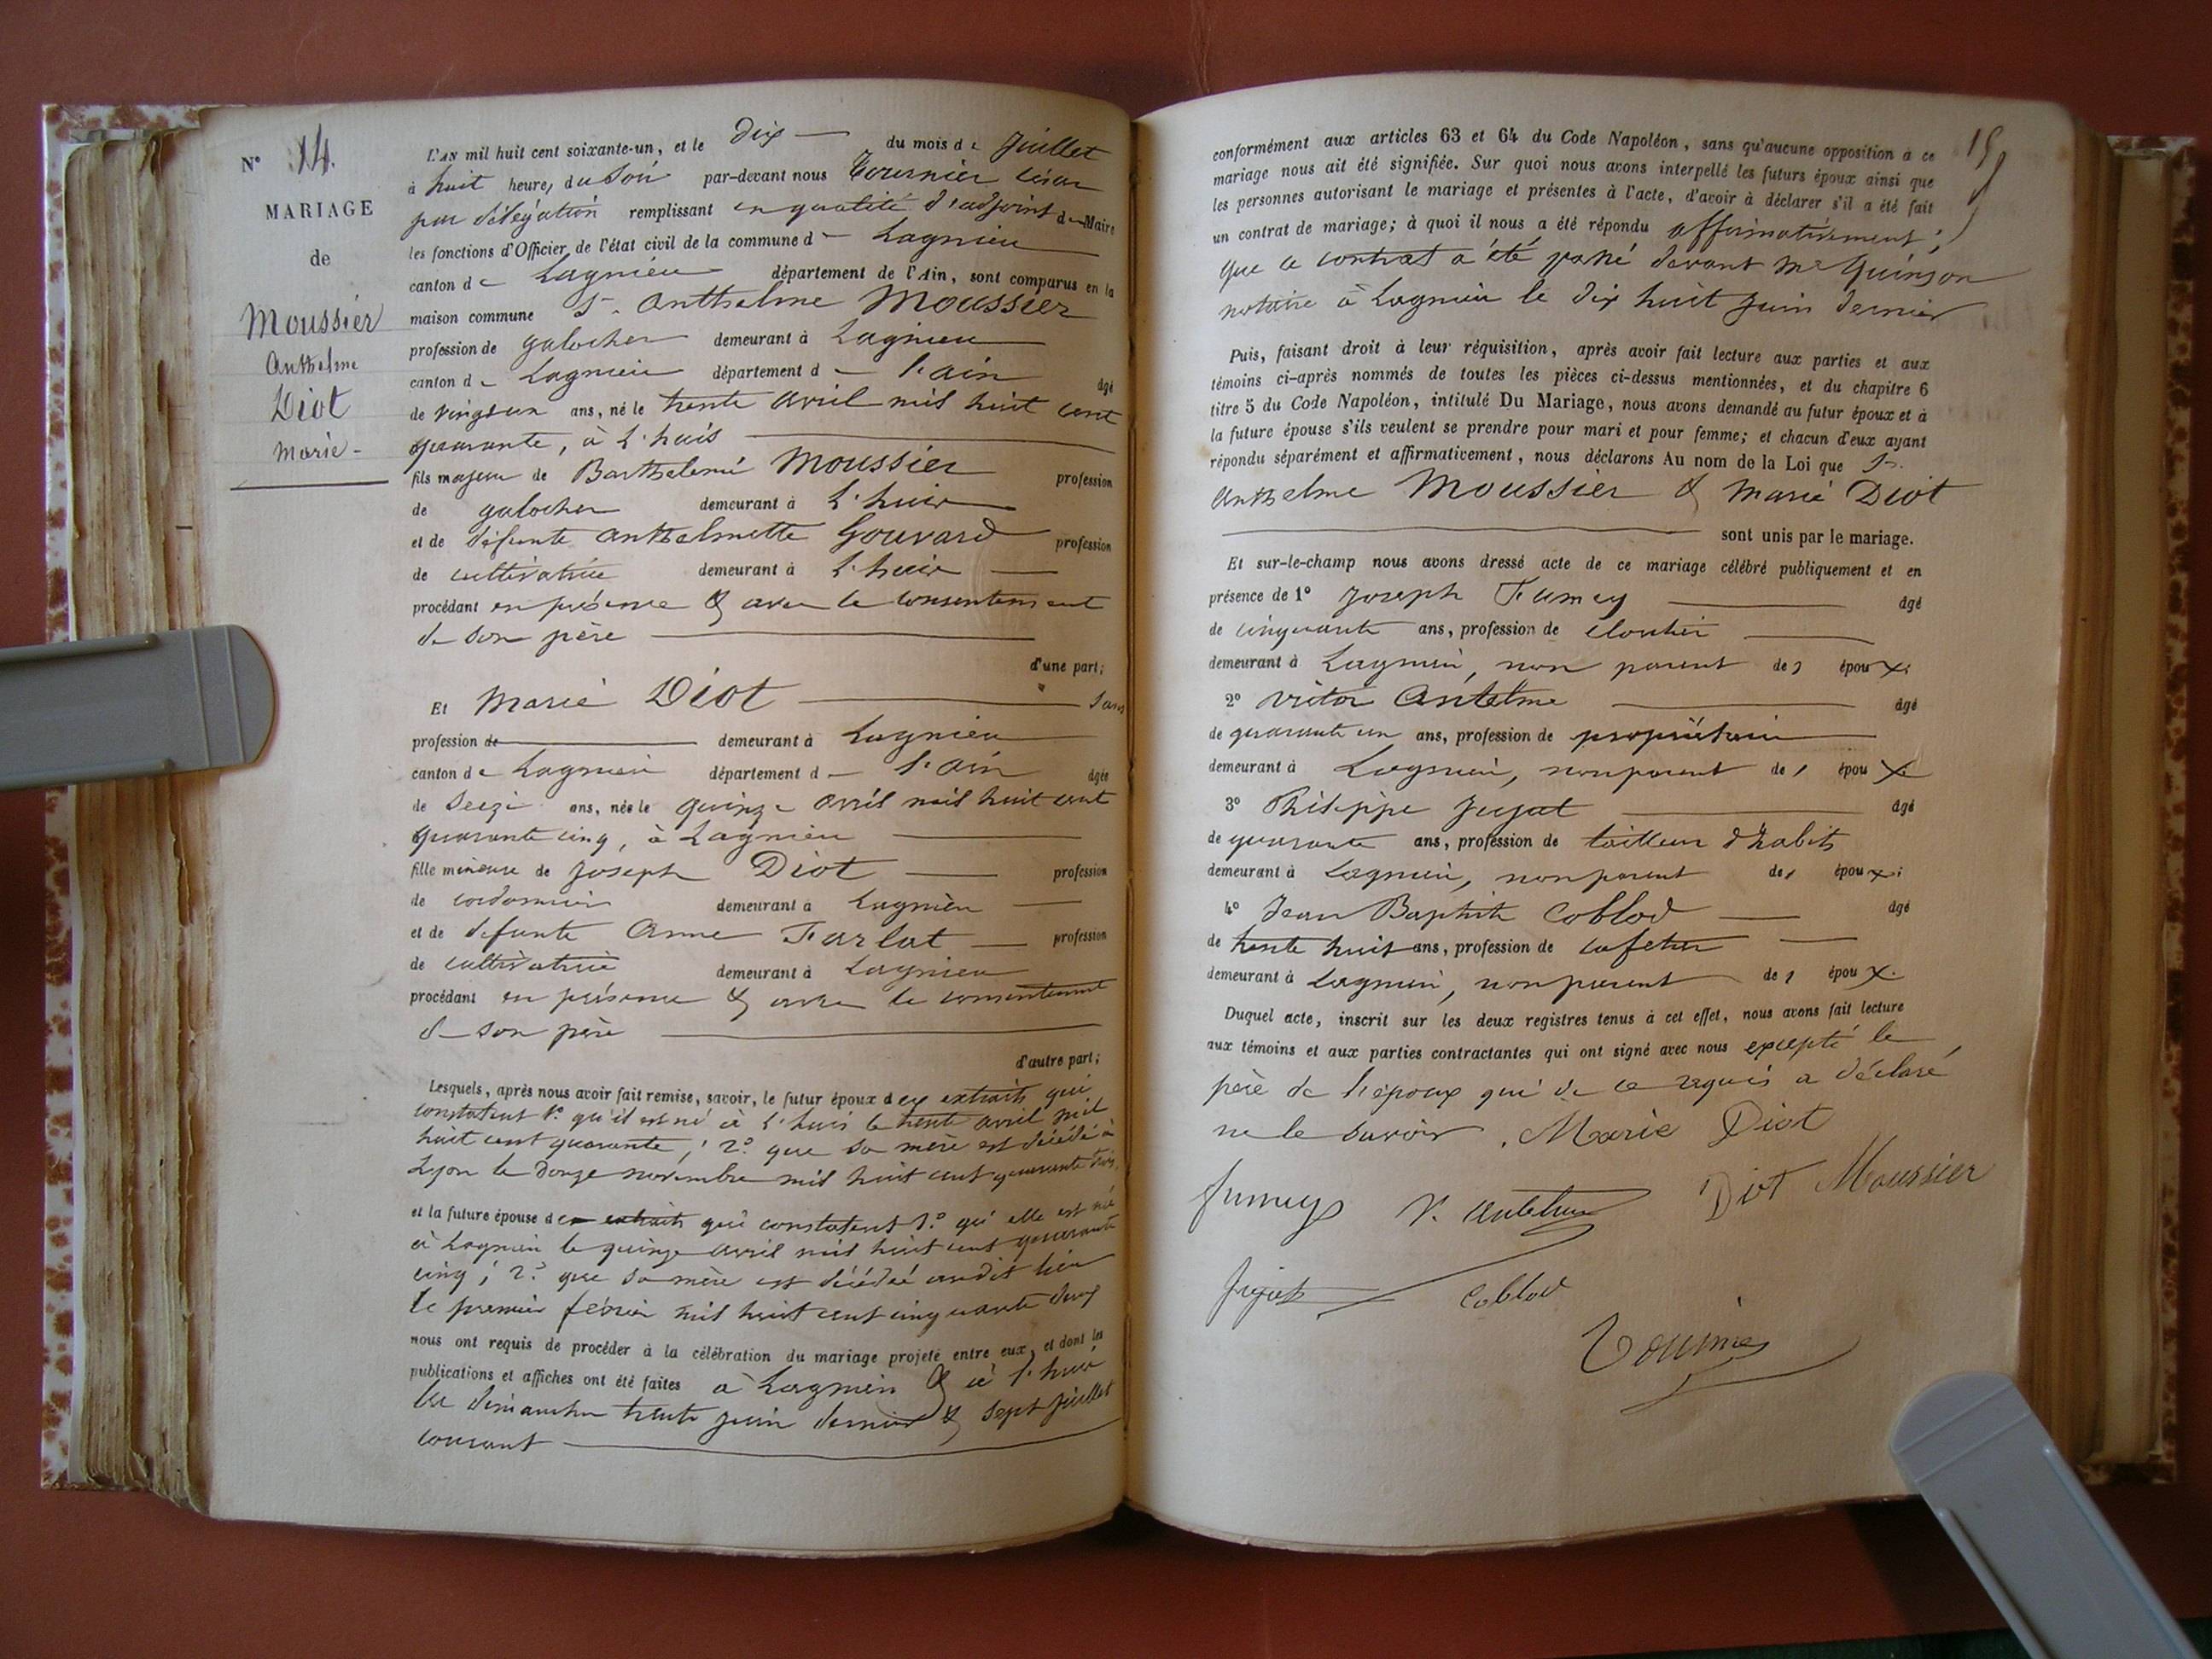 N° 14.
MARIAGE
de
Moussier
Anthelme
Diot
Marie -
L'AN mil huit cent soixante-un, et le Dix du mois de Juillet
à huit heure, du Soir par-devant nous Tournier César
par délégation remplissant en qualité d'adjoint du Maire
les fonctions d'Officier de l'état civil de la commune de Lagnieu
canton de Lagnieu département de l'Ain, sont comparus en la
maison commune Sr. Anthelme Moussier
profession de galocher demeurant à Lagnieu
canton de Lagnieu département de l'ain âgé
de vingt un ans, né le trente avril mil huit cent
quarante, à L'huis
fils majeur de Barthelemi Moussier profession
de galocher demeurant à L'huis
et de défunte Anthelmette Gouvard profession
de cultivatrice demeurant à L'huis
procédant en présence & avec le consentement
de son père
d'une part;
Et Marie Diot Sans
profession de demeurant à Lagnieu
canton de Lagnieu département de l'ain âgée
de Seize ans, née le quinze avril mil huit cent
quarante cinq, à Lagnieu
fille mineure de Joseph Diot profession
de cordonnier demeurant à Lagnieu
et de défunte Anne Farlat profession
de cultivatrice demeurant à Lagnieu
procédant en présence & avec le consentement
de son père
d'autre part;
Lesquels, après nous avoir fait remise, savoir, le futur époux des extraits qui
constatent 1° qu'il est né à L'huis le trente avril mil
huit cent quarante; 2° que sa mère est décédé à
Lyon le douze novembre mil huit cent quarante trois
et la future épouse des extraits qui constatent 1° qu'elle est né
à Lagnieu le quinze avril mil huit cent quarante
cinq; 2° que sa mère est décédée audit lieu
le premier février mil huit cent cinquante deux
nous ont requis de procéder à la célébration du mariage projeté entre eux, et dont les
publications et affiches ont été faites à Lagnieu & à L'huis
les dimanches trente juin dernier & sept juillet
courant
15
conformément aux articles 63 et 64 du Code Napoléon, sans qu'aucune opposition à ce
mariage nous ait été signifiée. Sur quoi nous avons interpellé les futurs époux ainsi que
les personnes autorisant le mariage et présentes à l'acte, d'avoir à déclarer s'il a été fait
un contrat de mariage; à quoi il nous a été répondu affirmativement;
que ce contrat a été passé devant Me Quinson
notaire à Lagnieu le dix huit juin dernier
Puis, faisant droit à leur réquisition, après avoir fait lecture aux parties et aux
témoins ci-après nommés de toutes les pièces ci-dessus mentionnées, et du chapitre 6
titre 5 du Code Napoléon, intitulé Du Mariage, nous avons demandé au futur époux et à
la future épouse s'ils veulent se prendre pour mari et pour femme; et chacun d'eux ayant
répondu séparément et affirmativement, nous déclarons Au nom de la Loi que Sr.
Anthelme Moussier & Marie Diot
sont unis par le mariage.
Et sur-le-champ nous avons dressé acte de ce mariage célébré publiquement et en
présence de 1° Joseph Fumey âgé
de cinquante ans, profession de cloutier
demeurant à Lagnieu, non parent des époux;
2° Victor Antelme âgé
de quarante un ans, profession de propriétaire
demeurant à Lagnieu, non parent des époux
3° Philippe Jujat âgé
de quarante ans, profession de tailleur d'habits
demeurant à Lagnieu, non parent des époux;
4° Jean Baptiste Coblod âgé
de trente huit ans, profession de cafetier
demeurant à Lagnieu, non parent des époux.
Duquel acte, inscrit sur les deux registres tenus à cet effet, nous avons fait lecture
aux témoins et aux parties contractantes qui ont signé avec nous excepté le
père de l'époux qui de ce requis a déclaré
ne le savoir. Marie Diot
fumey V. Antelme Diot Moussier
Jujat Coblod
Tournier